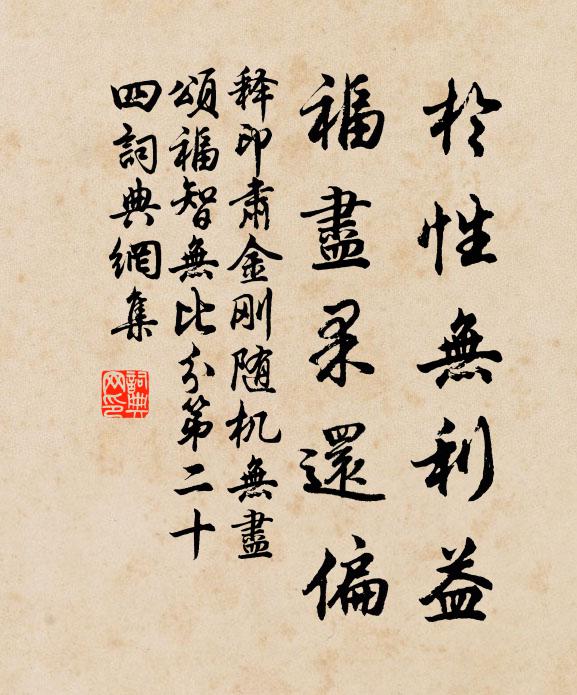 於性無利益
福盡果還偏
释印肅金刚随机無盡
頌福智無比分第二十
四詞典網集
詞典
网印